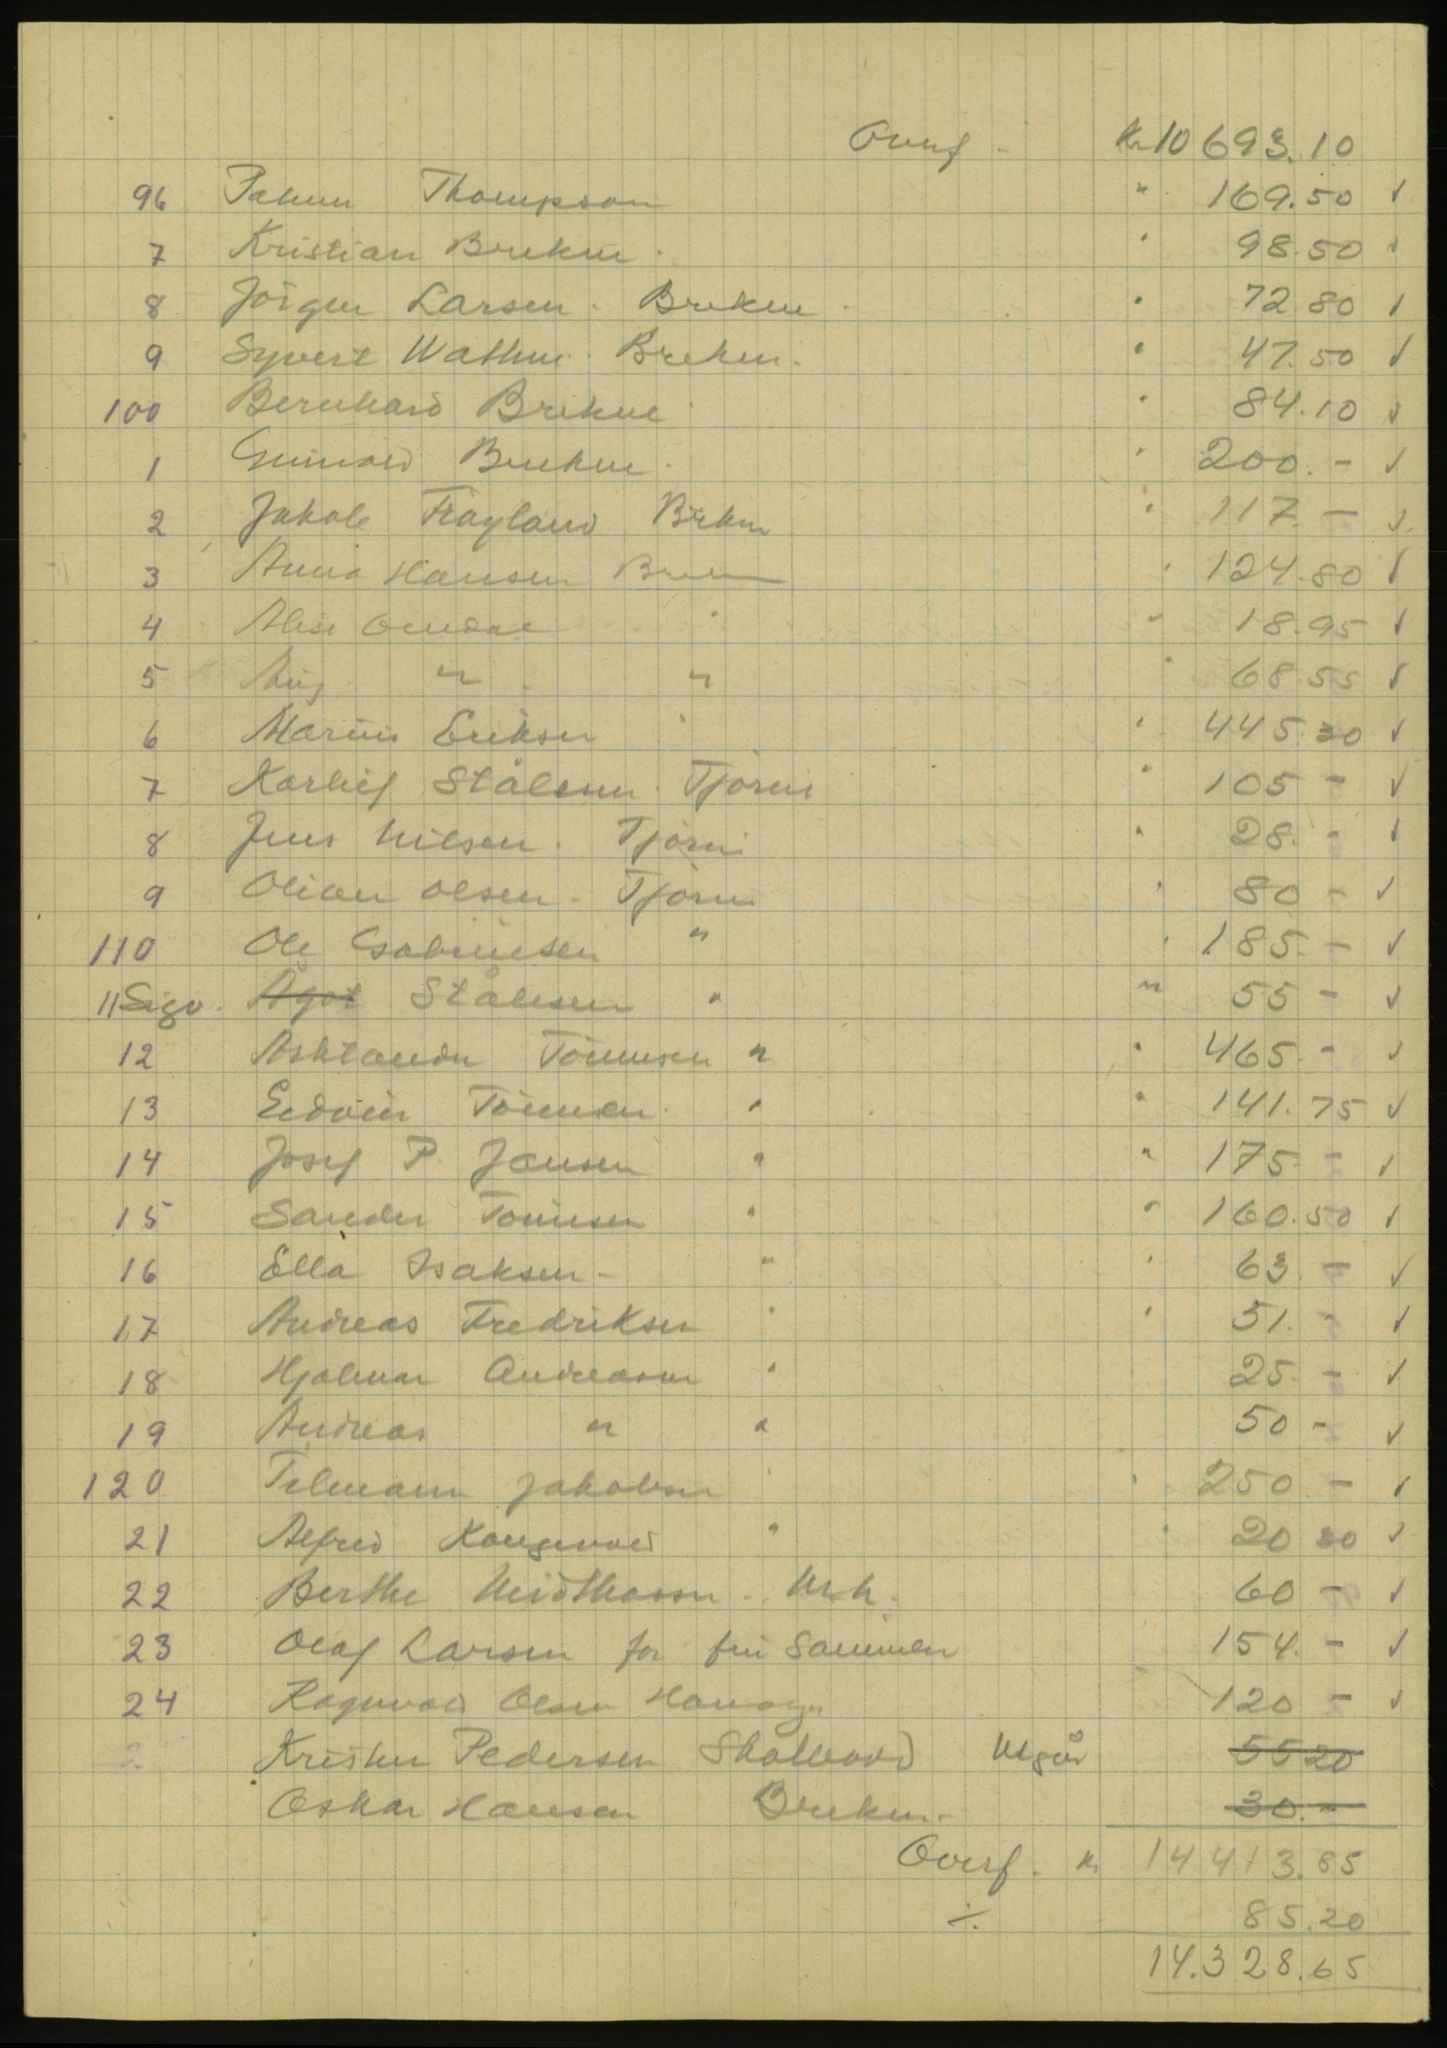 Overf - Kr 10 693.10
96 Thompson " 169.50 ✓
7 Kristian Brekne " 98.50 ✓
8 Jörgen Larsen. Brekne " 72 80 ✓
9 Syvert Wathne. Brekne. " 47.50 ✓
100 Bernhard Brekne " 84.10 ✓
1 Gunvald Brekne " 200.- ✓
2 Jakob Frøyland Brekne " 117.- ✓
3 Anna Hansen Brekne " 124.80 ✓
4 Alise " " 18.95 ✓
5 Aug " " " 68.55 ✓
6 Marius Eriksen " " 445.30 ✓
7 Karluf Stålesen. Tjörne " 105 - ✓
8 Jens Nilsen. Tjörne " 28.- ✓
9 Olian Olsen - Tjörne " 80 - ✓
110 Ole Gabrielsen " " 185.- ✓
11 Sigv. Ågot Stålesen " " 55 - ✓
12 Asklander Tönnesen " " 465.- ✓
13 Edvin Tönnesen " " 141.75 ✓
14 Josef P. Jansen " " 175 - ✓
15 Sander Tönnesen " " 160.50 ✓
16 Ella Isaksen - " " 63 - ✓
17 Andreas Fredriksen " " 51.- ✓
18 Hjalmar Andreasen " 25.- ✓
19 Andreas " " 50 - ✓
120 Telmann Jakobsen " " 250 - ✓
21 Alfred Kongevold " " 20 30 ✓
22 Berthe 60 - ✓
23 Olaf Larsen for fru Samuelsen 154.- ✓
24 Ragnvald Olsen 120 - ✓
Krister Pedersen Utgår 55 20
Oskar Hansen Brekne - 30.-
Overf. Kr 14 413.85
÷ 85.20
14.328.65